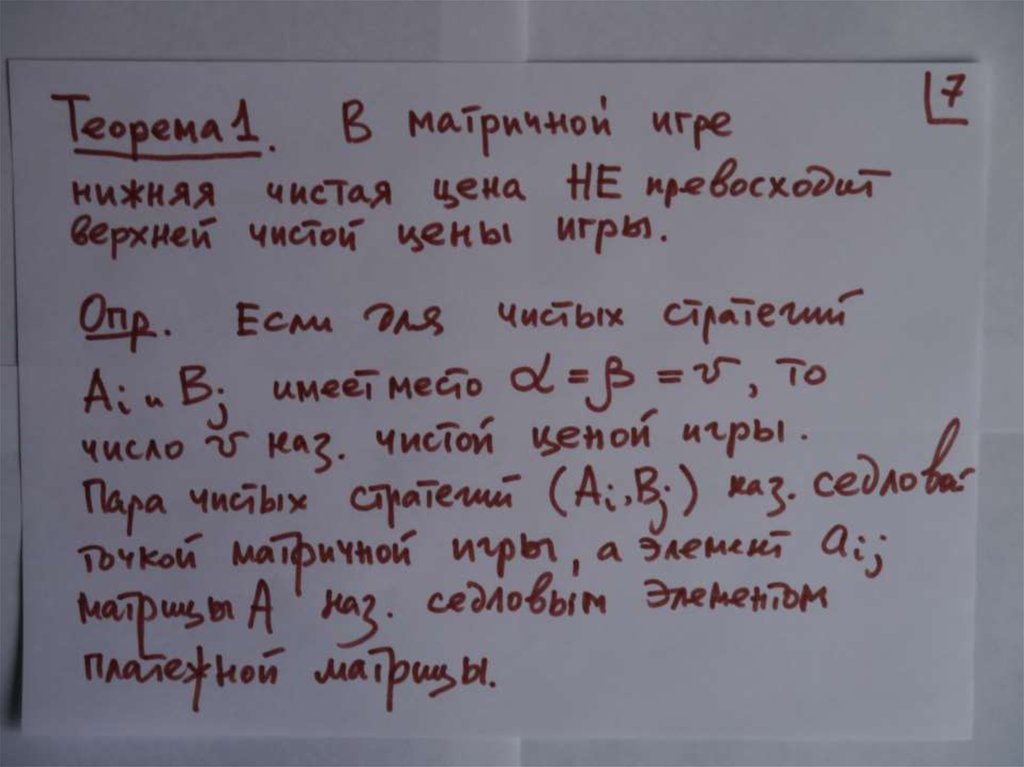 7
Теорема 1. В матричной игре
нижняя чистая цена НЕ превосходит
верхней чистой цены игры.
Опр. Если для чистых стратегий
Ai и Bj имеет место α = β = v, то
число v наз. чистой ценой игры.
Пара чистых стратегий (Ai, Bj) наз. седловой
точкой матричной игры, а элемент aij
матрицы A наз. седловым элементом
платежной матрицы.